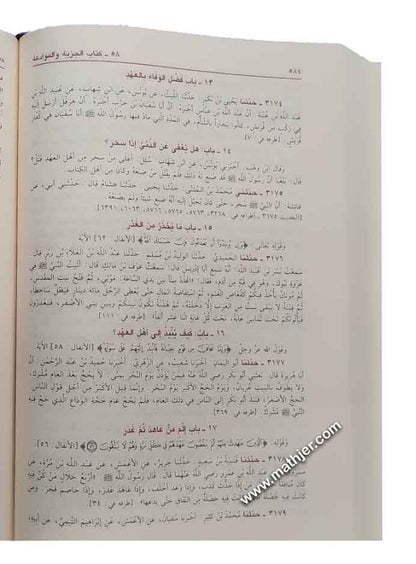 ٥٨ - كتاب الجزية والموادعة
٥٨٤
١٣ - باب فَضْلِ الوَفَاءِ بِالعَهْدِ
٣١٧٤ - حدّثنا يَحْيَى بْنُ بُكَيْرٍ: حَدَّثَنَا اللَّيْثُ، عَنْ يُونُسَ، عَنِ ابْنِ شِهَابٍ، عَنْ عُبَيْدِ اللَّهِ بْنِ
عَبْدِ اللَّهِ بْنِ عُتْبَةَ: أَنَّ عَبْدَ اللَّهِ بْنَ عَبَّاسٍ أَخْبَرَهُ: أَنَّ أَبَا سُفْيَانَ بْنَ حَرْبٍ أَخْبَرَهُ: أَنَّ هِرَقْلَ أَرْسَلَ إِلَيْهِ
فِي رَكْبٍ مِنْ قُرَيْشٍ، كَانُوا تِجَاراً بِالشَّأْمِ، فِي المُدَّةِ الَّتِي مَادَّ فِيهَا رَسُولُ اللَّهِ ﷺ أَبَا سُفْيَانَ فِي كُفَّارِ
قُرَيْشٍ. [طرفه في ٧].
١٤ - باب: هَل يُعْفَى عَنِ الذِّمِّيِّ إِذَا سَحَرَ؟
وَقَالَ ابْنُ وَهْبٍ: أَخْبَرَنِي يُونُسُ، عَنِ ابْنِ شِهَابٍ: سُئِلَ: أَعَلَى مَنْ سَحَرَ مِنْ أَهْلِ العَهْدِ قَتْلٌ؟
قَالَ: بَلَغَنَا أَنَّ رَسُولَ اللَّهِ ﷺ قَدْ صُنِعَ لَهُ ذلِكَ فَلَمْ يَقْتُلْ مَنْ صَنَعَهُ، وَكَانَ مِنْ أَهْلِ الكِتَابِ.
٣١٧٥ - حدّثنا مُحَمَّدُ بْنُ المُثَنَّى: حَدَّثَنَا يَحْيَى: حَدَّثَنَا هِشَامٌ قَالَ: حَدَّثَنِي أَبِي، عَنْ
عَائِشَةَ: أَنَّ النَّبِيَّ ﷺ سُحِرَ، حَتَّى كَانَ يُخَيَّلُ إِلَيْهِ أَنَّهُ صَنَعَ شَيْئاً وَلَمْ يَصْنَعْهُ.
[الحديث ٣١٧٥ - أطرافه في: ٣٢٦٨، ٥٧٦٣، ٥٧٦٥، ٥٧٦٦، ٦٠٦٣، ٦٣٩١].
١٥ - باب مَا يُحْذَرُ مِنَ الغَدْرِ
وَقَوْلِهِ تَعَالَى: ﴿وَإِن يُرِيدُوا أَن يَخْدَعُوكَ فَإِنَّ حَسْبَكَ اللَّهُ﴾ [الأنفال: ٦٢] الآيَةَ.
٣١٧٦ - حدّثنا الحُمَيْدِيُّ: حَدَّثَنَا الوَلِيدُ بْنُ مُسْلِمٍ: حَدَّثَنَا عَبْدُ اللَّهِ بْنُ العَلَاءِ بْنِ زَبْرٍ قَالَ:
سَمِعْتُ بُسْرَ بْنَ عُبَيْدِ اللَّهِ: أَنَّهُ سَمِعَ أَبَا إِدْرِيسَ قَالَ: سَمِعْتُ عَوْفَ بْنَ مَالِكٍ قَالَ: أَتَيْتُ النَّبِيَّ ﷺ فِي
غَزْوَةِ تَبُوكَ، وَهُوَ فِي قُبَّةٍ مِنْ أَدَمٍ، فَقَالَ: «اعْدُدْ سِتًّا بَيْنَ يَدَيِ السَّاعَةِ: مَوْتِي، ثُمَّ فَتْحُ بَيْتِ المَقْدِسِ،
ثُمَّ مُوتَانٌ يَأْخُذُ فِيكُمْ كَقُعَاصِ الغَنَمِ، ثُمَّ اسْتِفَاضَةُ المَالِ حَتَّى يُعْطَى الرَّجُلُ مِائَةَ دِينَارٍ، فَيَظَلُّ سَاخِطاً،
ثُمَّ فِتْنَةٌ لَا يَبْقَى بَيْتٌ مِنَ العَرَبِ إِلَّا دَخَلَتْهُ، ثُمَّ هُدْنَةٌ تَكُونُ بَيْنَكُمْ وَبَيْنَ بَنِي الأَصْفَرِ، فَيَغْدِرُونَ
فَيَأْتُونَكُمْ تَحْتَ ثَمَانِينَ غَايَةً، تَحْتَ كُلِّ غَايَةٍ اثْنَا عَشَرَ أَلْفاً».
١٦ - باب: كَيْفَ يُنْبَذُ إِلَى أَهْلِ العَهْدِ؟
وَقَوْلُ اللَّهِ عَزَّ وَجَلَّ: ﴿وَإِمَّا تَخَافَنَّ مِن قَوْمٍ خِيَانَةً فَانبِذْ إِلَيْهِمْ عَلَى سَوَاءٍ﴾ [الأنفال: ٥٨] الآيَةَ.
٣١٧٧ - حدّثنا أَبُو اليَمَانِ: أَخْبَرَنَا شُعَيْبٌ، عَنِ الزُّهْرِيِّ: أَخْبَرَنَا حُمَيْدُ بْنُ عَبْدِ الرَّحْمنِ: أَنَّ
أَبَا هُرَيْرَةَ قَالَ: بَعَثَنِي أَبُو بَكْرٍ رَضِيَ اللَّهُ عَنْهُ فِيمَنْ يُؤَذِّنُ يَوْمَ النَّحْرِ بِمِنًى: لَا يَحُجُّ بَعْدَ العَامِ مُشْرِكٌ،
وَلَا يَطُوفُ بِالبَيْتِ عُرْيَانٌ، وَيَوْمُ الحَجِّ الأَكْبَرِ يَوْمُ النَّحْرِ، وَإِنَّمَا قِيلَ الأَكْبَرُ مِنْ أَجْلِ قَوْلِ النَّاسِ:
الحَجُّ الأَصْغَرُ، فَنَبَذَ أَبُو بَكْرٍ إِلَى النَّاسِ فِي ذلِكَ العَامِ، فَلَمْ يَحُجَّ عَامَ حَجَّةِ الوَدَاعِ الَّذِي حَجَّ فِيهِ
النَّبِيُّ ﷺ مُشْرِكٌ. [طرفه في: ٣٦٩].
١٧ - باب إِثْمِ مَنْ عَاهَدَ ثُمَّ غَدَرَ
وَقَوْلِهِ: ﴿الَّذِينَ عَاهَدْتَ مِنْهُمْ ثُمَّ يَنقُضُونَ عَهْدَهُمْ فِي كُلِّ مَرَّةٍ وَهُمْ لَا يَتَّقُونَ﴾ [الأنفال: ٥٦].
٣١٧٨ - حدّثنا قُتَيْبَةُ بْنُ سَعِيدٍ: حَدَّثَنَا جَرِيرٌ، عَنِ الأَعْمَشِ، عَنْ عَبْدِ اللَّهِ بْنِ مُرَّةَ، عَنْ
٣١٧٩ - حدّثنا مُحَمَّدُ بْنُ كَثِيرٍ: أَخْبَرَنَا سُفْيَانُ، عَنِ الأَعْمَشِ، عَنْ إِبْرَاهِيمَ التَّيْمِيِّ، عَنْ أَبِيهِ،
www.mathjer.com